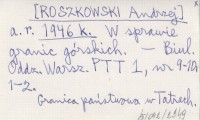 [ROSZKOWSKI Andrzej]
a.r. 1946 k. W sprawie
granic górskich. — Biul.
Oddz. Warsz. PTT 1, nr 9-10,
1-2.
Granica państwowa w Tatrach.